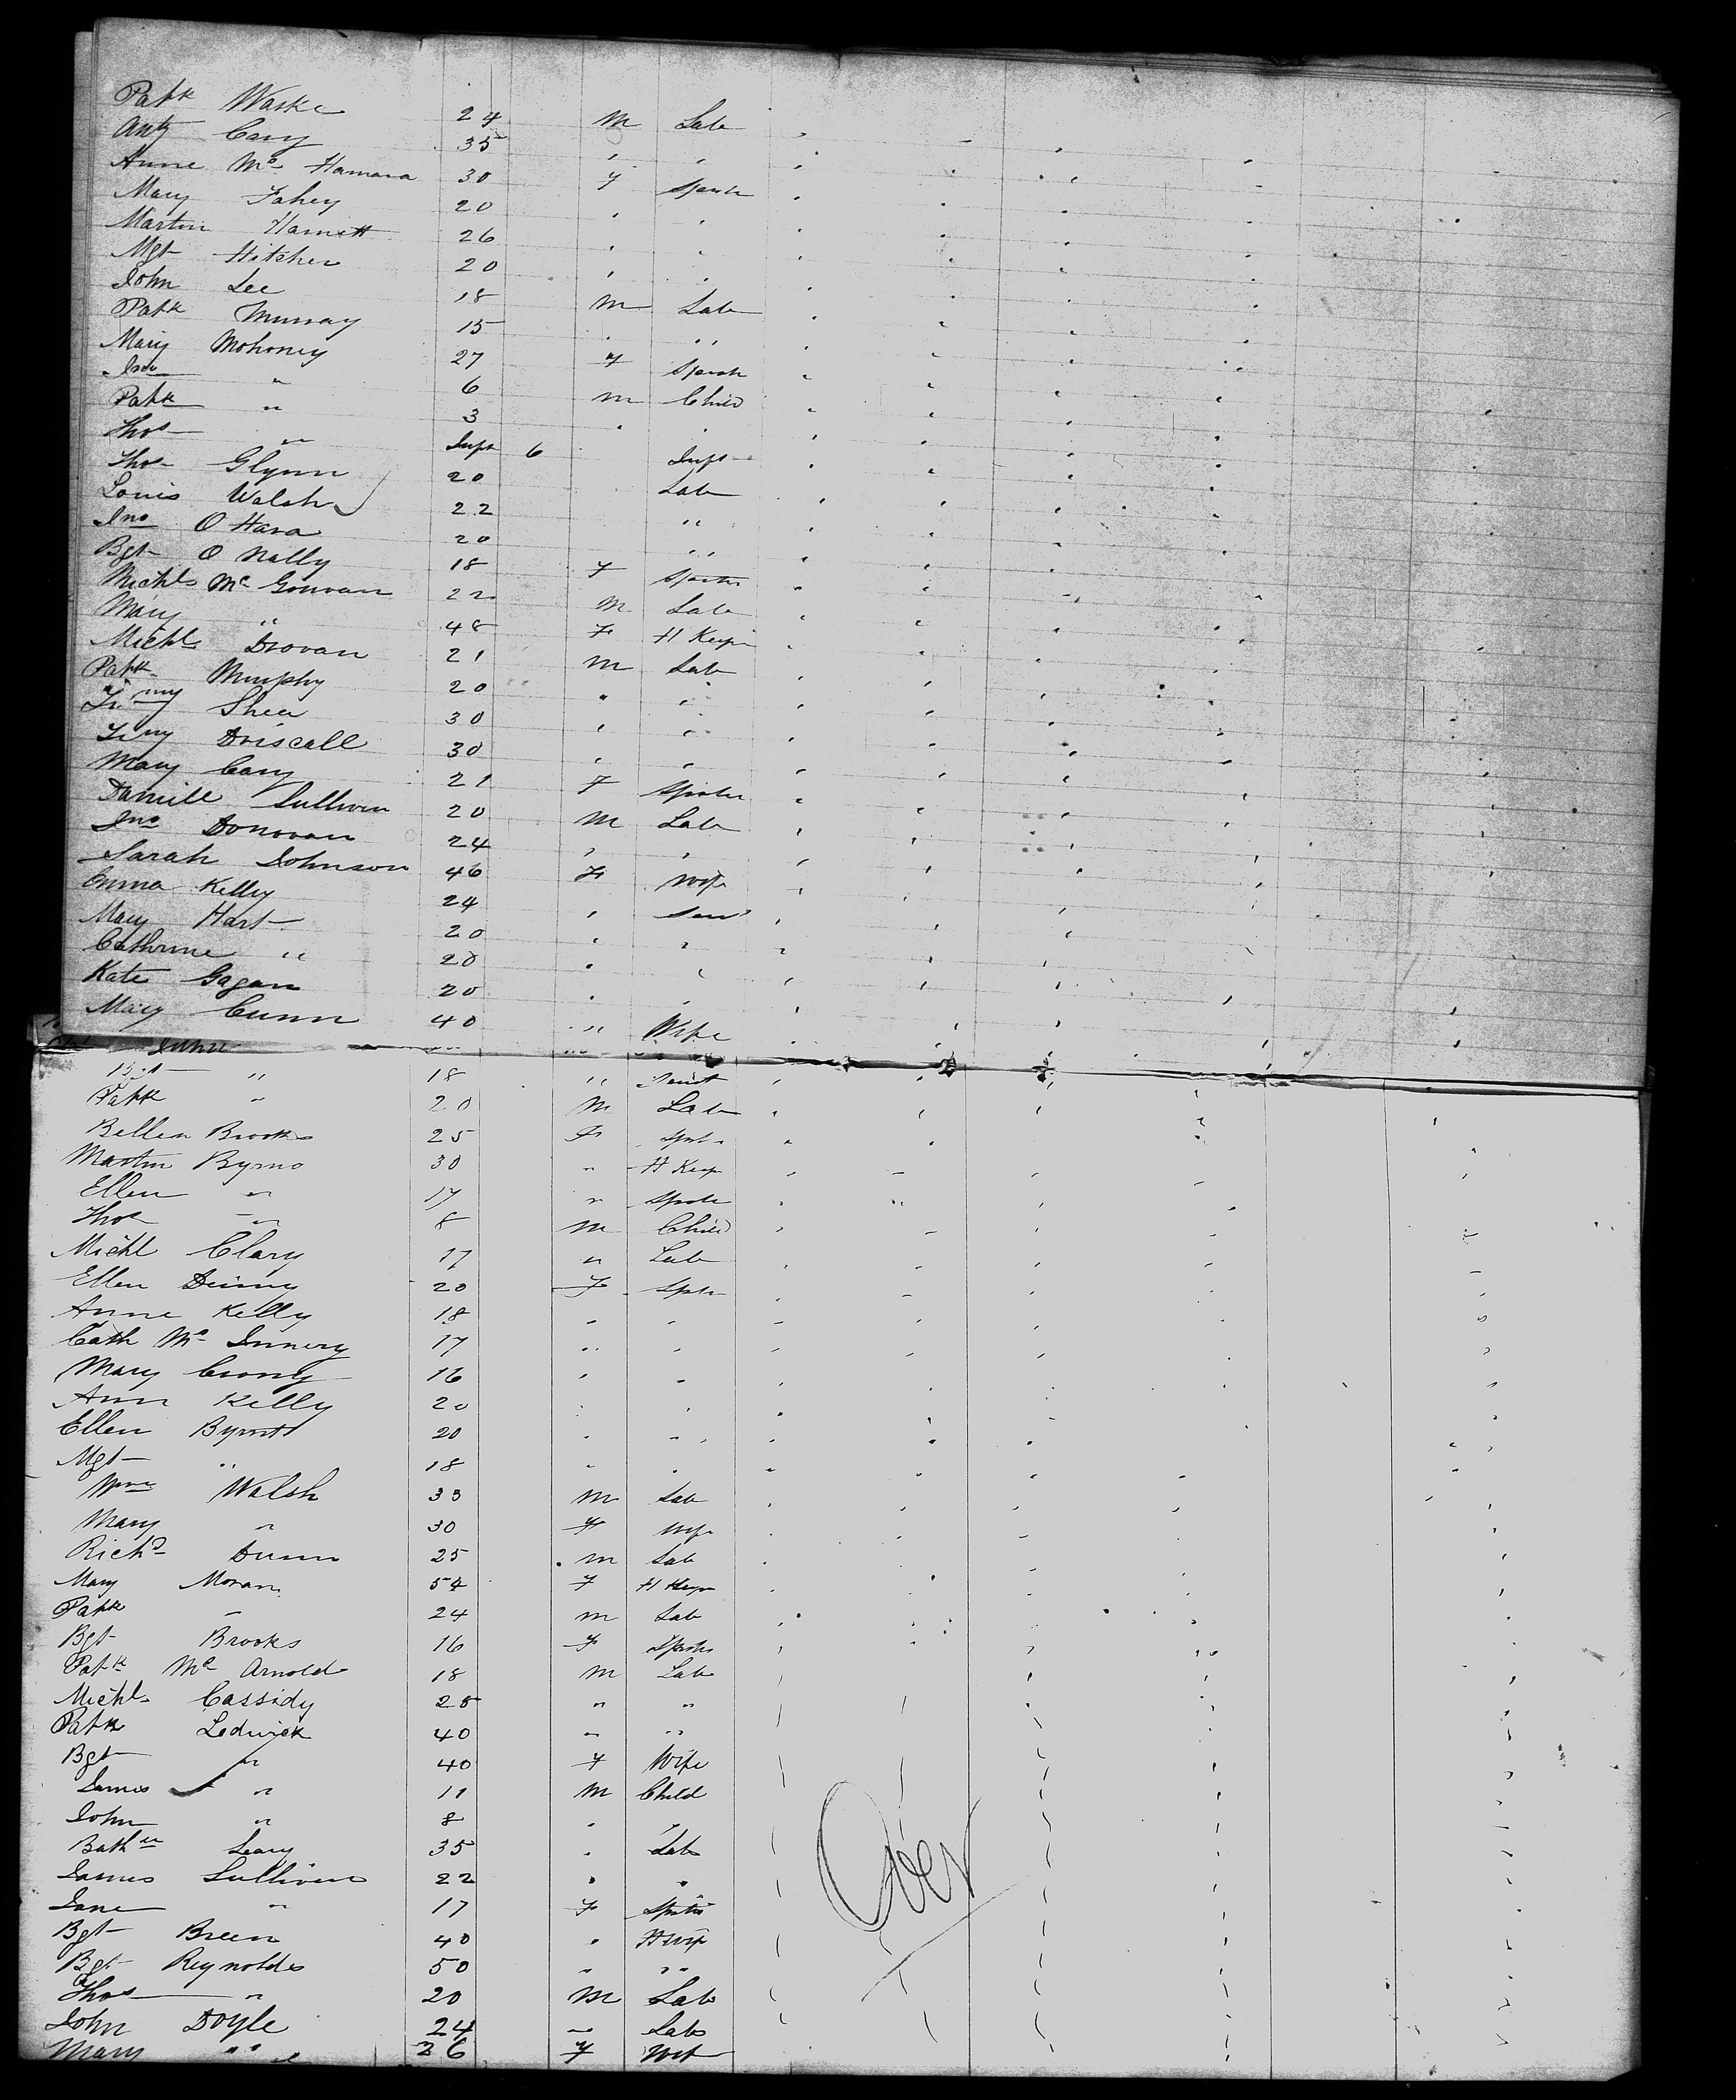 Patk Waske 24 M Lab
Anty Cary 35 " "
Anne Mc Hamara 30 F Spinster
Mary Fahey 20 " "
Martin Harnett 26 " "
Mgt Hitchen 20 " "
John Lee 18 M Lab
Patk Murray 15 " "
Mary Mohoney 27 F Spinster
Jno " 6 M Child
Patk " 3 " "
Thos " Inft 6 Inft
Thos Glynn 20 Lab
Louis Walsh 22 "
Jno O Hara 20 "
Bgt O Nally 18 F Spinster
Michl Mc Gowan 22 M Lab
Mary " 48 F H Keep
Michl Drovan 21 M Lab
Patk Murphy 20 " "
Timy Shea 30 " "
Timy Driscall 30 " "
Mary Cary 21 F Spinster
Daniell Sullivan 20 M Lab
Jno Donovan 24 " "
Sarah Johnson 46 F Wife
Emma Kelly 24 " Serv
Mary Hart 20 " "
Catherine " 20 " "
Kate Gagan 20 " "
Mary Cunn 40 " Wife
Bgt " 18 " Servt
Patk " 20 M Lab
Bellen Brooks 25 F Spstr
Martin Byrne 30 " H Keep
Ellen " 17 " Spstr
Thos " 8 M Child
Michl Clary 17 " Lab
Ellen Dinny 20 F Spstr
Anne Kelly 18 " "
Cath Mc Innery 17 " "
Mary Crony 16 " "
Ann Kelly 20 " "
Ellen Byrnt 20 " "
Mgt " 18 " "
Wm Walsh 33 M Lab
Mary " 30 F Wife
Richd Dunn 25 M Lab
Mary Moran 54 F H Keep
Patk " 24 M Lab
Bgt Brooks 16 F Spstr
Patk Mc Arnold 18 M Lab
Michl Cassidy 25 " "
Patk Ledwick 40 " "
Bgt " 40 F Wife
James " 11 M Child
John " 8 " "
Bathw Leary 35 " Lab
James Sullivan 22 " "
Over
Jane " 17 F Spstr
Bgt Breen 40 " H Wife
Bgt Reynolds 50 " "
Thos " 20 M Lab
John Doyle 24 " Lab
Mary " 26 F Wife